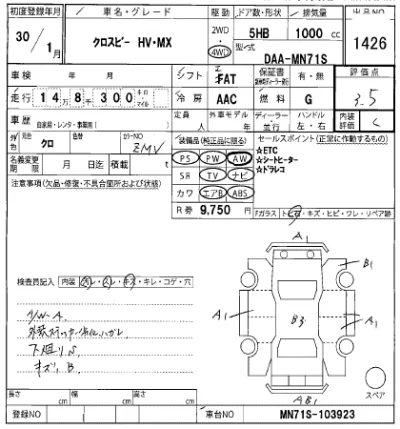 初度登録年月 車名・グレード 駆動 ドア数・形状 排気量 出品NO
30/1月 クロスビー HV・MX 2WD・4WD 5HB 1000cc 1426
型式 DAA-MN71S
車検 年 月 シフト FAT 保証書 有・無 評価点
走行 14万8千300 キロ・マイル 冷房 AAC 燃料 G 3.5
車歴 自家用・レンタ・事業用( ) 定員 人 外車モデル 年 ディーラー・並行 ハンドル 左・右 内装評価 C
外色 元色 クロ 色替 カラーNO ZMV 装備品(純正品に限る) セールスポイント(正常に作動するもの)
名義変更期限 月 日迄 積載 t PS PW AW ☆ETC
SR TV ナビ ☆シートヒーター
注意事項(欠品・修復・不具合箇所および状態) カワ エアB ABS ☆ドラレコ
R券 9,750円
Fガラス トビ石・キズ・ヒビ・ワレ・リペア跡
検査員記入 内装 ヨレ・スレ・キズ・キレ・コゲ・穴
A1
B1
A1 B3 A1
A/W-A
下廻りS
キズ、B
スペア
長さ cm 幅 cm 高さ cm
登録NO 車台NO MN71S-103923